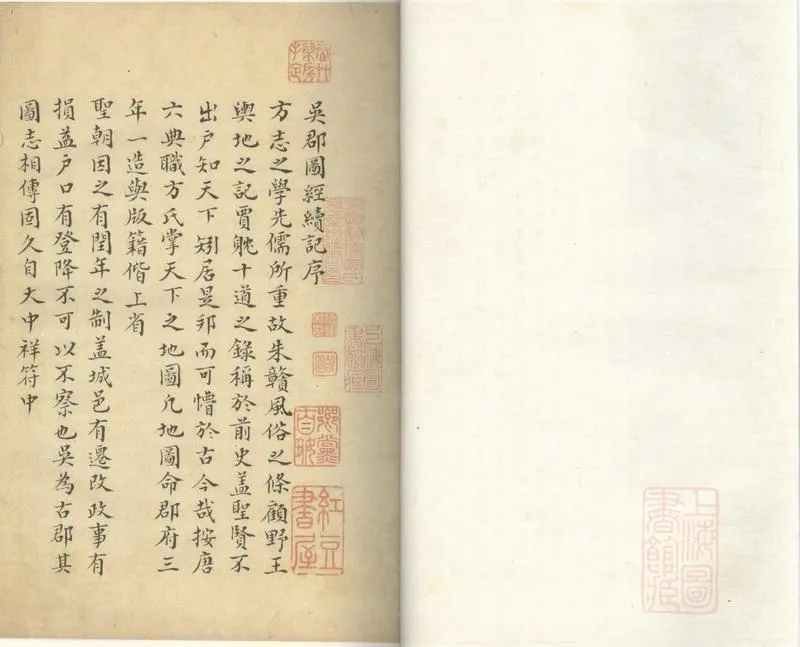 吳郡圖經續記序
方志之學先儒所重故朱贛風俗之條顧野王
輿地之記賈躭十道之錄稱於前史蓋聖賢不
出户知天下矧居是邦而可懵於古今哉按唐
六典職方氏掌天下之地圖凡地圖命郡府三
年一造與版籍偕上省
聖朝因之有閏年之制蓋城邑有遷改政事有
損益户口有登降不可以不察也吳為古郡其
圖志相傳固久自大中祥符中
上海圖書館藏
紅豆書屋
上海圖書館藏